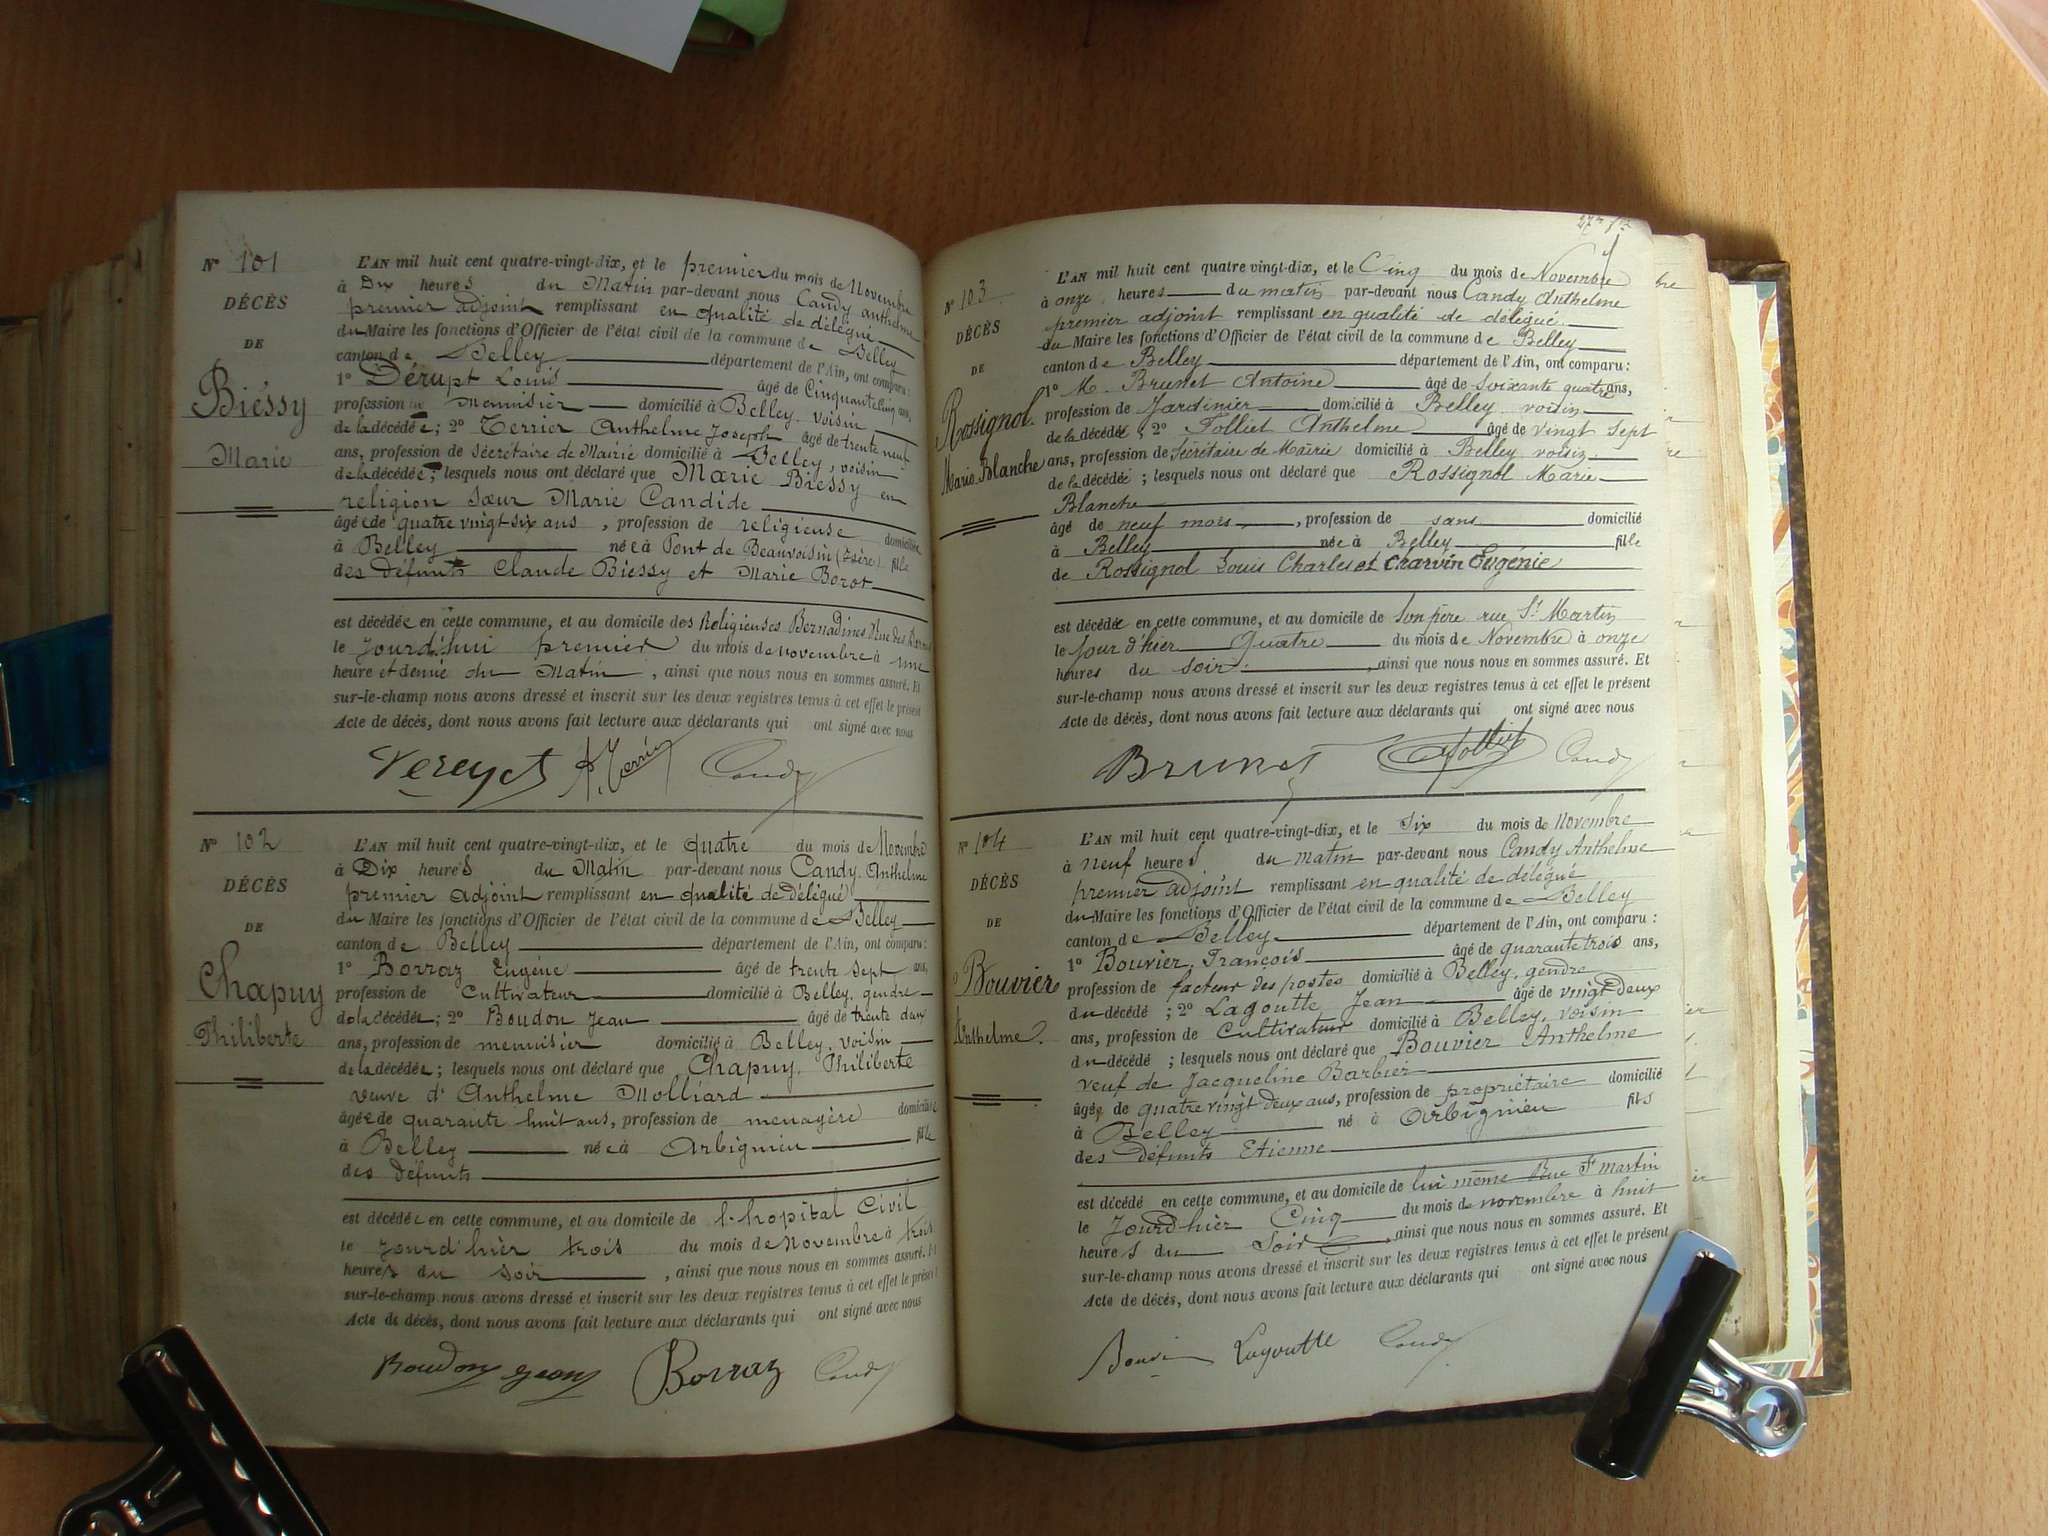 Nº 101
DÉCÈS
DE
Biessy
Marie
L'AN mil huit cent quatre-vingt-dix, et le premier du mois de Novembre
à Dix heures du Matin par-devant nous Candy anthelme
premier adjoint remplissant en qualité de délégué
du Maire les fonctions d'Officier de l'état civil de la commune de Belley
canton de Belley département de l'Ain, ont comparu :
1º Dérupt Louis âgé de Cinquante cinq ans,
profession de Menuisier domicilié à Belley, voisin
de la décédée; 2º Terrier Anthelme Joseph âgé de trente neuf
ans, profession de Sécrétaire de Mairie domicilié à Belley, voisin
de la décédée; lesquels nous ont déclaré que Marie Biessy en
religion Sœur Marie Candide
âgée de quatre vingt six ans, profession de religieuse domiciliée
à Belley née à Pont de Beauvoisin (Isère) fille
des Défunts Claude Biessy et Marie Borot
est décédée en cette commune, et au domicile des Religieuses Bernadines Rue des
le Jourd'hui premier du mois de novembre à une
heure et demie du Matin, ainsi que nous nous en sommes assuré. Et
sur-le-champ nous avons dressé et inscrit sur les deux registres tenus à cet effet le présent
Acte de décès, dont nous avons fait lecture aux déclarants qui ont signé avec nous
A. Terrier Candy
Nº 102
DÉCÈS
DE
Chapuy
Philiberte
L'AN mil huit cent quatre-vingt-dix, et le quatre du mois de Novembre
à Dix heures du Matin par-devant nous Candy, Anthelme
premier adjoint remplissant en qualité de délégué
du Maire les fonctions d'Officier de l'état civil de la commune de Belley
canton de Belley département de l'Ain, ont comparu :
1º Borraz Eugéne âgé de trente sept ans,
profession de Cultivateur domicilié à Belley, gendre
de la décédée; 2º Boudon Jean âgé de trente deux
ans, profession de menuisier domicilié à Belley, voisin
de la décédée; lesquels nous ont déclaré que Chapuy, Philiberte
veuve d'Anthelme Molliard
âgée de quarante huit ans, profession de menagère domiciliée
à Belley née à Arbignieu fille
des défunts
est décédée en cette commune, et au domicile de l'hopital Civil
le Jourd'hier trois du mois de Novembre à trois
heures du soir, ainsi que nous nous en sommes assuré. Et
sur-le-champ nous avons dressé et inscrit sur les deux registres tenus à cet effet le présent
Acte de décès, dont nous avons fait lecture aux déclarants qui ont signé avec nous
Boudon Jean Borraz Candy
Nº 103
DÉCÈS
DE
Rossignol
Marie Blanche
L'AN mil huit cent quatre-vingt-dix, et le Cinq du mois de Novembre
à onze heures du matin par-devant nous Candy Anthelme
premier adjoint remplissant en qualité de délégué
du Maire les fonctions d'Officier de l'état civil de la commune de Belley
canton de Belley département de l'Ain, ont comparu :
1º M. Brunet Antoine âgé de soixante quatre ans,
profession de Jardinier domicilié à Belley voisin
de la décédée; 2º Folliet Anthelme âgé de vingt sept
ans, profession de Sécrétaire de Mairie domicilié à Belley voisin
de la décédée; lesquels nous ont déclaré que Rossignol Marie
Blanche
âgé de neuf mois, profession de sans domicilié
à Belley née à Belley fille
de Rossignol Louis Charles et Charvin Eugénie
est décédée en cette commune, et au domicile de son père rue St Martin
le Jour d'hier Quatre du mois de Novembre à onze
heures du soir, ainsi que nous nous en sommes assuré. Et
sur-le-champ nous avons dressé et inscrit sur les deux registres tenus à cet effet le présent
Acte de décès, dont nous avons fait lecture aux déclarants qui ont signé avec nous
Brunet Folliet Candy
Nº 104
DÉCÈS
DE
Bouvier
Anthelme
L'AN mil huit cent quatre-vingt-dix, et le Six du mois de novembre
à neuf heures du matin par-devant nous Candy Anthelme
premier adjoint remplissant en qualité de délégué
du Maire les fonctions d'Officier de l'état civil de la commune de Belley
canton de Belley département de l'Ain, ont comparu :
1º Bouvier, François âgé de quarante trois ans,
profession de facteur des postes domicilié à Belley, gendre
du décédé; 2º Lagoutte Jean âgé de vingt deux
ans, profession de Cultivateur domicilié à Belley, voisin
du décédé; lesquels nous ont déclaré que Bouvier Anthelme
veuf de Jacqueline Barbier
âgé de quatre vingt deux ans, profession de propriétaire domicilié
à Belley né à Arbignieu fils
des défunts Etienne
est décédé en cette commune, et au domicile de lui même Rue St martin
le Jourd'hier Cinq du mois de novembre à huit
heures du Soir, ainsi que nous nous en sommes assuré. Et
sur-le-champ nous avons dressé et inscrit sur les deux registres tenus à cet effet le présent
Acte de décès, dont nous avons fait lecture aux déclarants qui ont signé avec nous
Lagoutte Candy